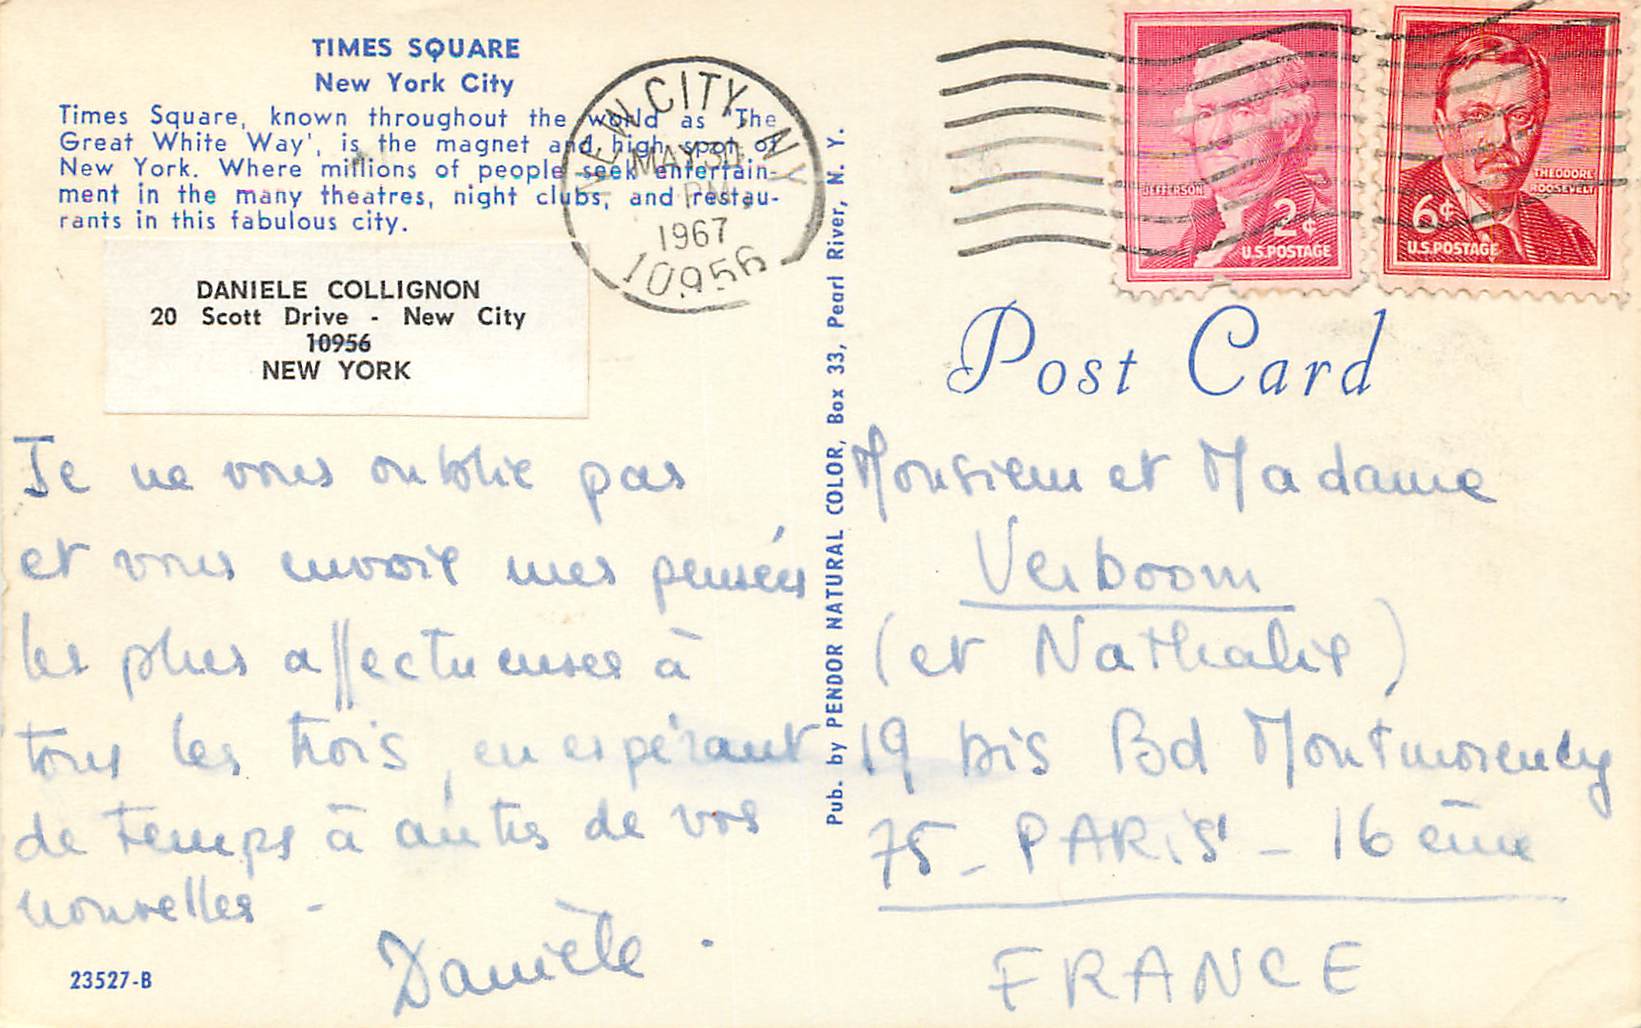 TIMES SQUARE
New York City
Times Square, known throughout the world as 'The
Great White Way', is the magnet and high spot of
New York. Where millions of people seek entertain-
ment in the many theatres, night clubs, and restau-
rants in this fabulous city.
NEW CITY, NY
MAY 30
PM
1967
10956
JEFFERSON
2¢
U.S. POSTAGE
THEODORE
ROOSEVELT
6¢
U.S. POSTAGE
DANIELE COLLIGNON
20 Scott Drive - New City
10956
NEW YORK
Je ne vous oublie pas
et vous envoie mes pensées
les plus affectueuses à
tous les trois, en espérant
de temps à autre de vos
nouvelles -
Danièle.
23527-B
Pub. by PENDOR NATURAL COLOR, Box 33, Pearl River, N. Y.
Post Card
Monsieur et Madame
Verboom
(et Nathalie)
19 bis Bd Montmorency
75 - PARIS - 16 ème
FRANCE